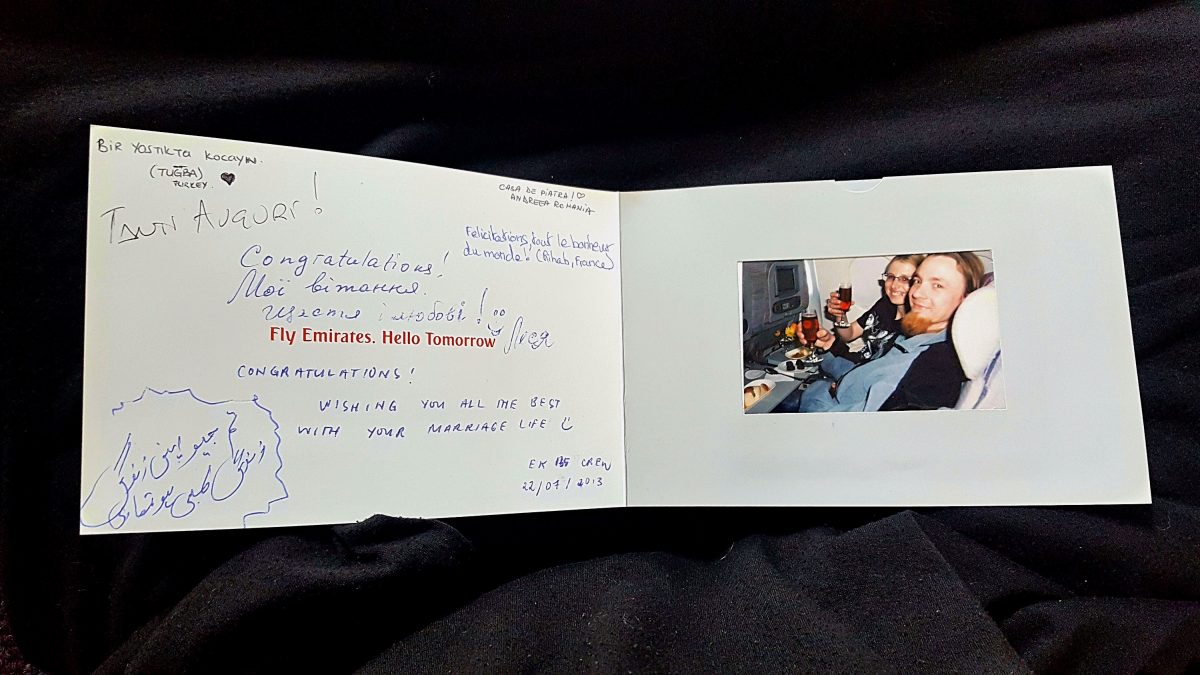 BiR YASTIKTA KOCAYIN.
(TUĞBA)
TURKEY.
TANTI AUGURI!
CASA DE PIATRA!
ANDREEA ROMANIA
Felicitations, tout le bonheur
du monde! (Rihab, France)
Congratulations!
Мої вітання.
Щастя і любові!
Fly Emirates. Hello Tomorrow
CONGRATULATIONS!
WISHING YOU ALL THE BEST
WITH YOUR MARRIAGE LIFE
EK CREW
22/07/2013
جیو اپنی زندگی